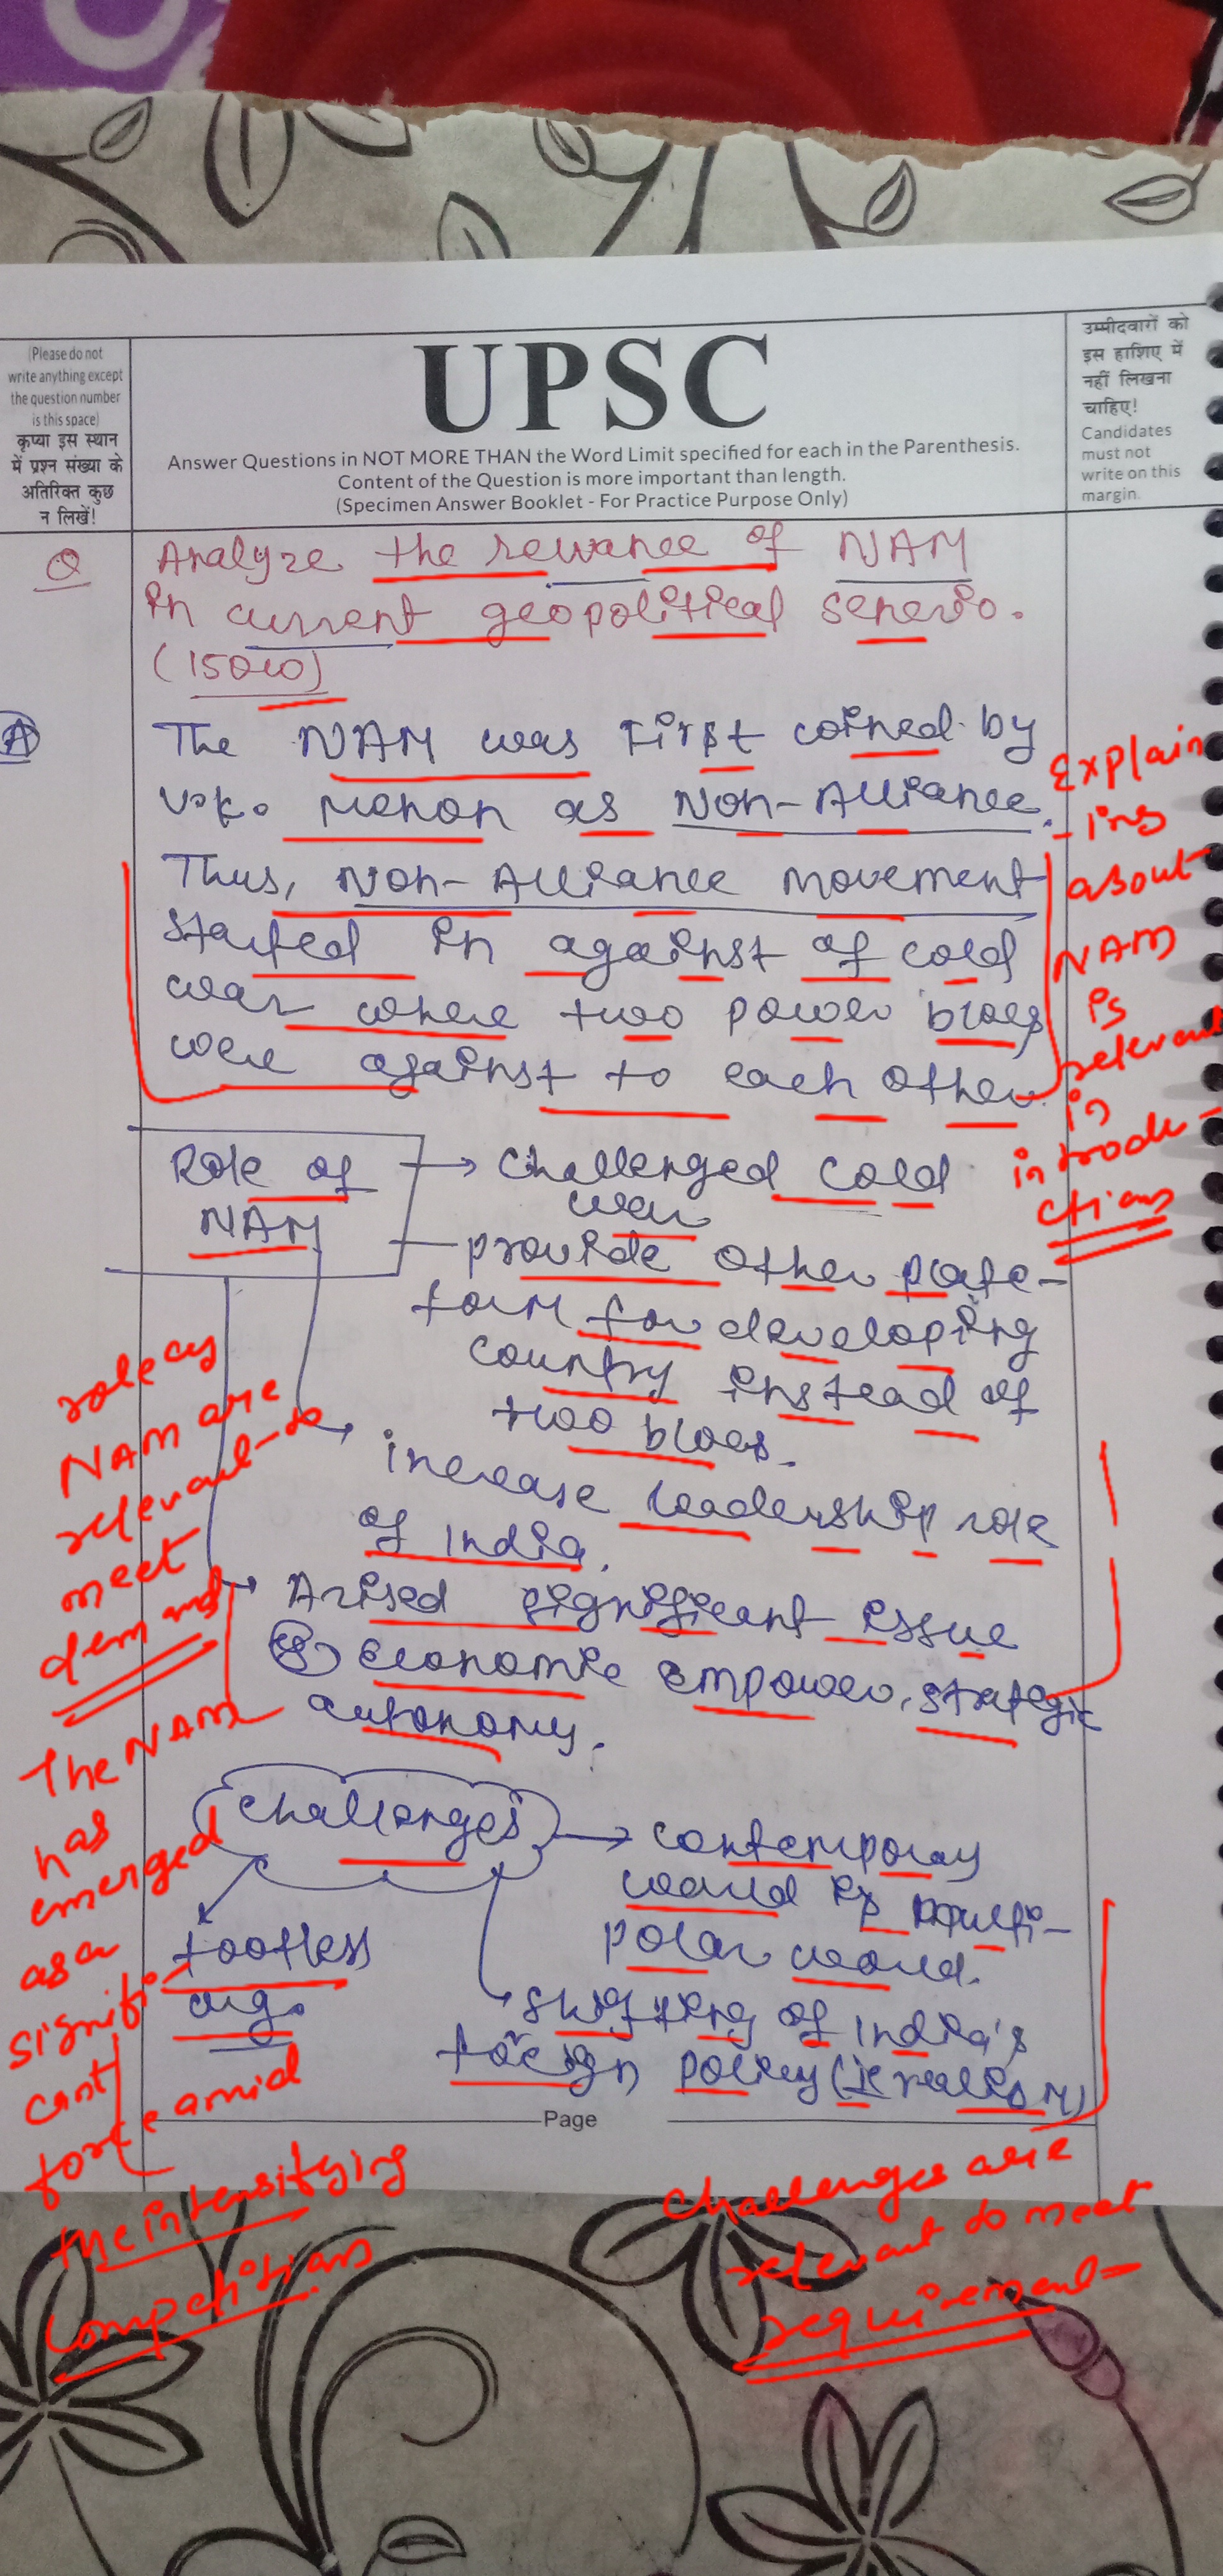 (Please do not
write anything except
the question number
is this space)
कृप्या इस स्थान
में प्रश्न संख्या के
अतिरिक्त कुछ
न लिखें!
UPSC
Answer Questions in NOT MORE THAN the Word Limit specified for each in the Parenthesis.
Content of the Question is more important than length.
(Specimen Answer Booklet - For Practice Purpose Only)
उम्मीदवारों को
इस हाशिए में
नहीं लिखना
चाहिए!
Candidates
must not
write on this
margin.
Q
Analyze the rewance of NAM
in current geopolitical senerio.
(150w)
A
The NAM was first coined by
V.K. Menon as Non-Alliance.
Thus, Non-Alliance movement
started in against of cold
war where two power blocs
were against to each other.
Explain
-ing
about
NAM
is
relevant
in
introdu-
ctions
Role of
NAM
→ Challenged cold
war
provide other plate-
form for developing
country instead of
two blocs.
increase leadership role
of India.
→ Arised significant issue
economic empower, strategic
autonomy.
role of
NAM are
relevant to
meet
demand
The NAM
has
emerged
as a
signifi-
cant
force amid
the intensifying
competitions
Challenges → contemporay
world is multi-
polar world.
toothless
org.
shifting of India's
foreign policy (realism)
Page
challenges are
relevant to meet
requirement